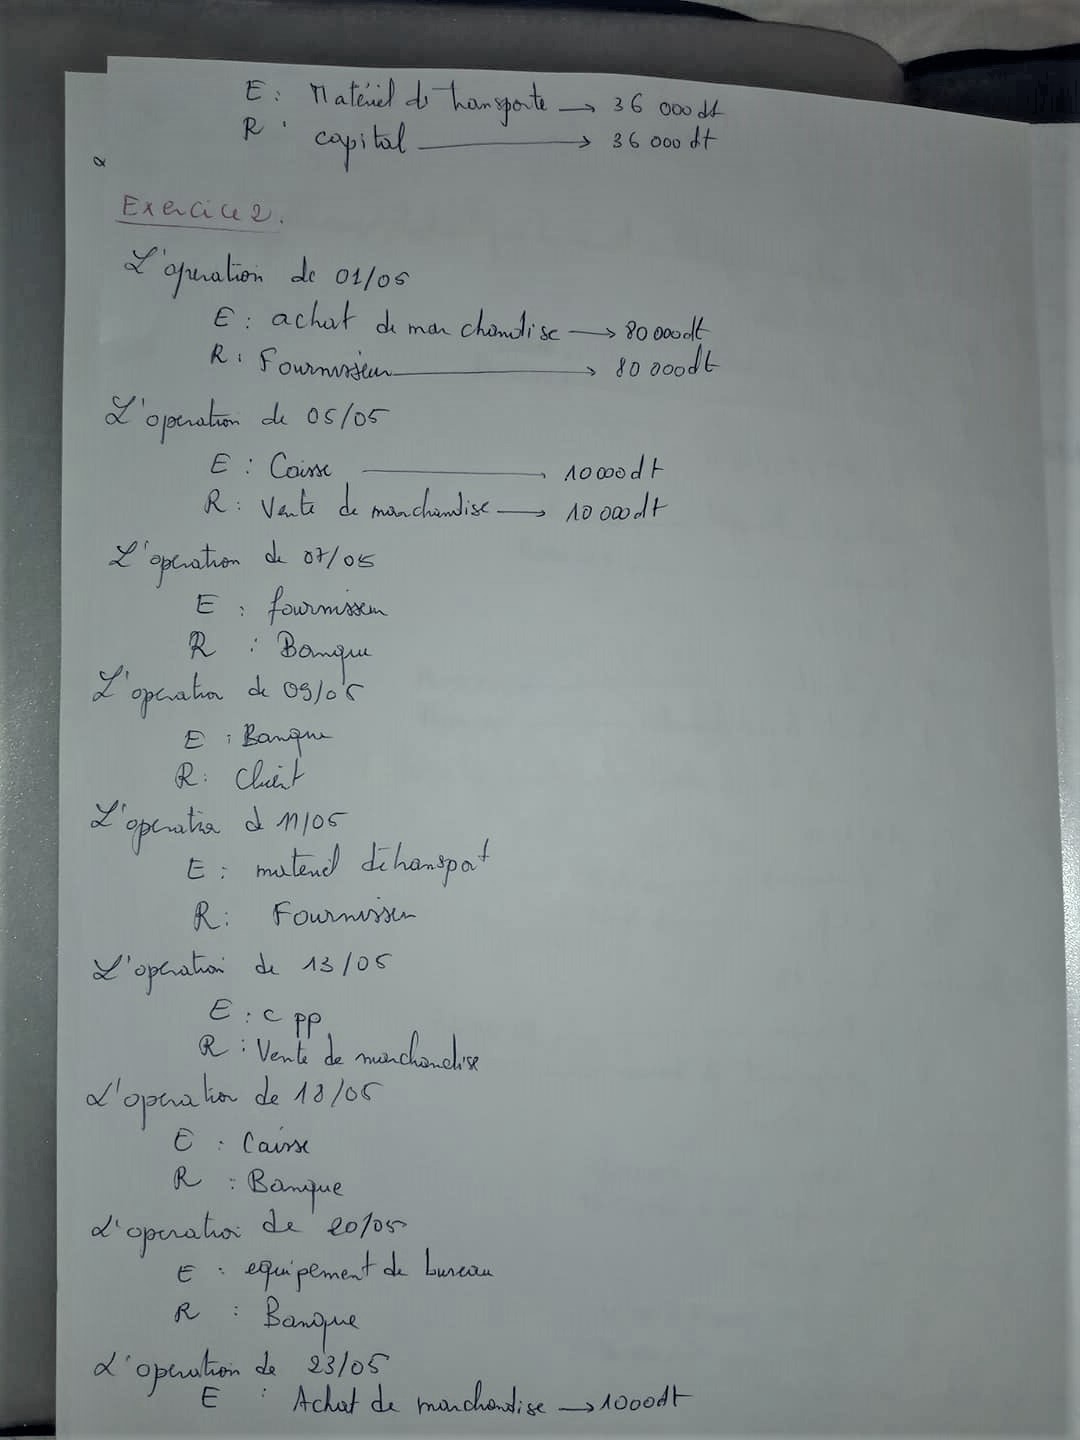 E : Matériel de transporte → 36 000 dt
R : capital → 36 000 dt
Exercice 2.
L'operation de 01/05
E : achat de marchandise → 80 000 dt
R : Fournisseur → 80 000 dt
L'operation de 05/05
E : Caisse → 10 000 dt
R : Vente de marchandise → 10 000 dt
L'operation de 07/05
E : fournisseur
R : Banque
L'operation de 09/05
E : Banque
R : Client
L'operation d 11/05
E : materiel de transport
R : Fournisseur
L'operation de 13/05
E : c pp
R : Vente de marchandise
L'operation de 18/05
E : Caisse
R : Banque
L'operation de 20/05
E : equipement de bureau
R : Banque
L'operation de 23/05
E : Achat de marchandise → 1000 dt